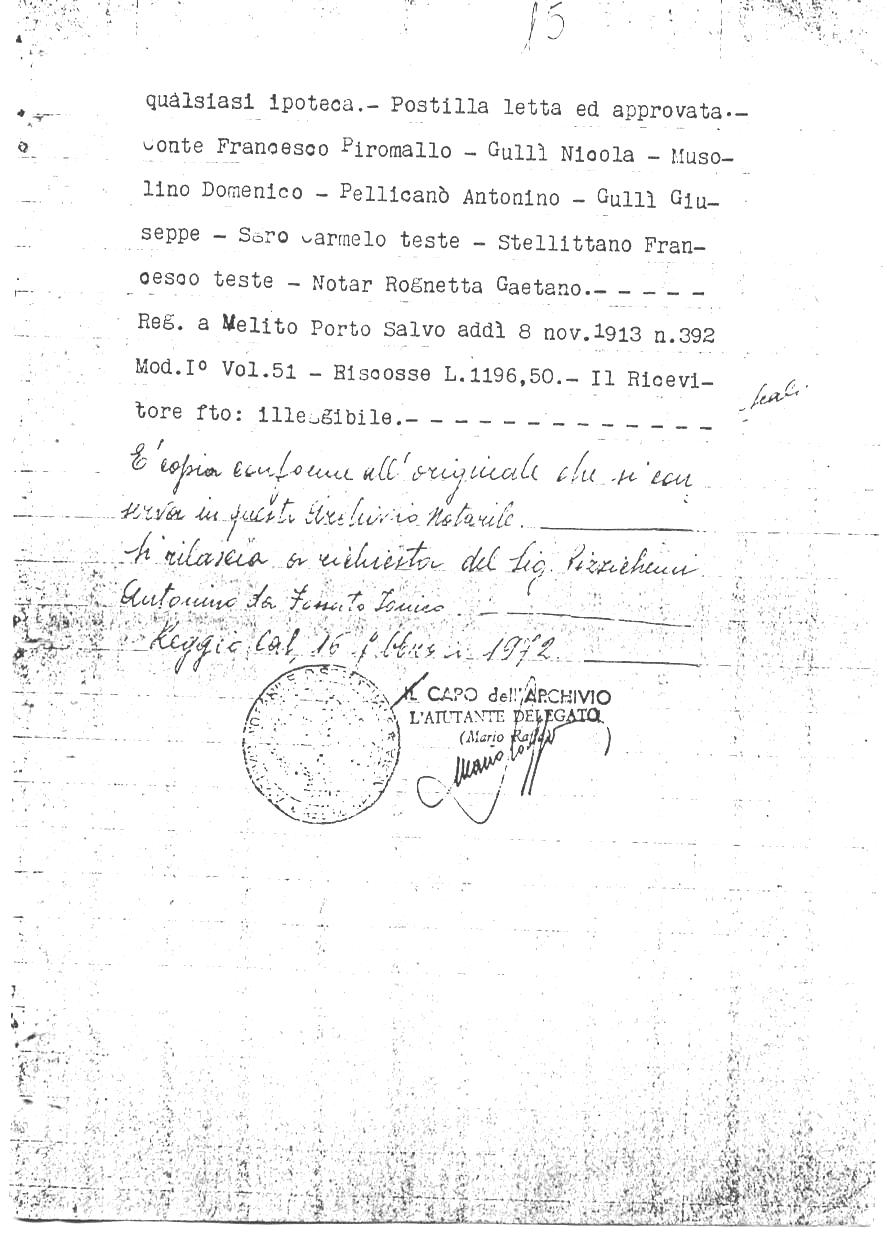 15
qualsiasi ipoteca.- Postilla letta ed approvata.-
Conte Francesco Piromallo - Gullì Nicola - Muso-
lino Domenico - Pellicanò Antonino - Gullì Giu-
seppe - Saro Carmelo teste - Stellittano Fran-
cesco teste - Notar Rognetta Gaetano.- - - - -
Reg. a Melito Porto Salvo addì 8 nov.1913 n.392
Mod.Iº Vol.51 - Riscosse L.1196,50.- Il Ricevi-
tore fto: illeggibile.- - - - - - - - - - - - -
E' copia conforme all'originale che si con
serva in questo Archivio Notarile.
Si rilascia a richiesta del Sig. Pizzichemi
Antonino da Fossato Ionico
Reggio Cal, 16 febbraio 1972
IL CAPO dell'ARCHIVIO
L'AIUTANTE DELEGATO
(Mario Raffa)
Mario